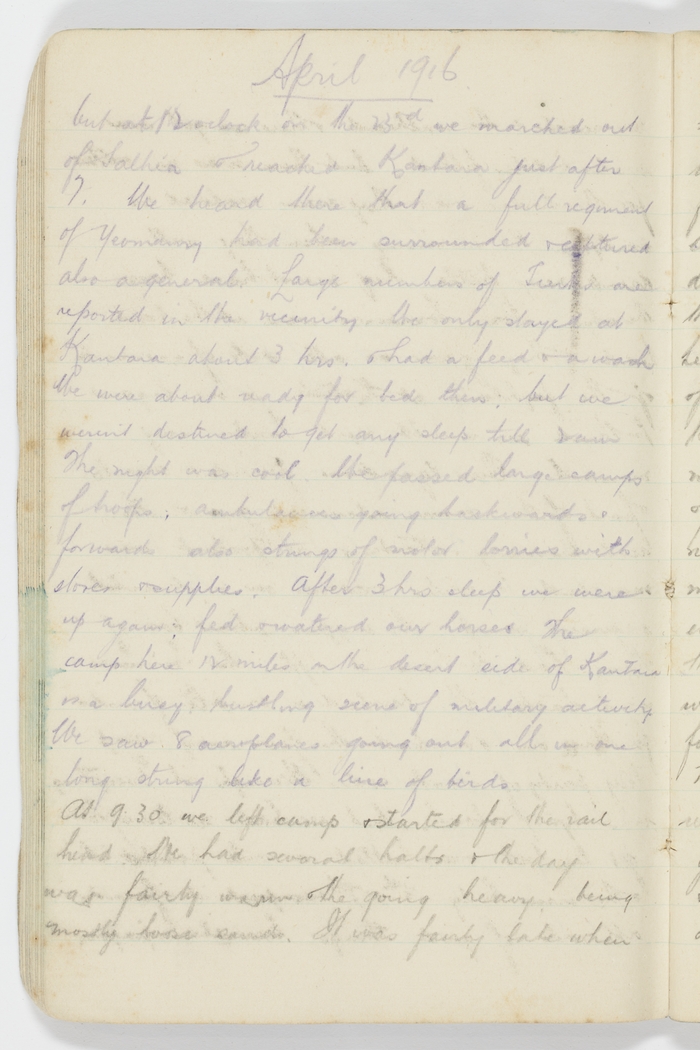 April 1916
but at 12 oclock on the 23rd we marched out
of Salhia & reached Kantara just after
7. We heard there that a full regiment
of Yeomanry had been surrounded & captured
also a general. Large numbers of Turks are
reported in the vicinity. We only stayed at
Kantara about 3 hrs. & had a feed & a wash
We were about ready for bed then; but we
weren't destined to get any sleep till 2am
The night was cool. We passed large camps
of troops; ambulances going backwards &
forwards also strings of motor lorries with
stores & supplies. After 3 hrs sleep we were
up again; fed & watered our horses. The
camp here 12 miles on the desert side of Kantara
is a busy, bustling scene of military activity
We saw 8 aeroplanes going out all in one
long string like a line of birds
At 9.30 we left camp & started for the rail
head. We had several halts & the day
was fairly warm & the going heavy being
mostly loose sand. It was fairly late when